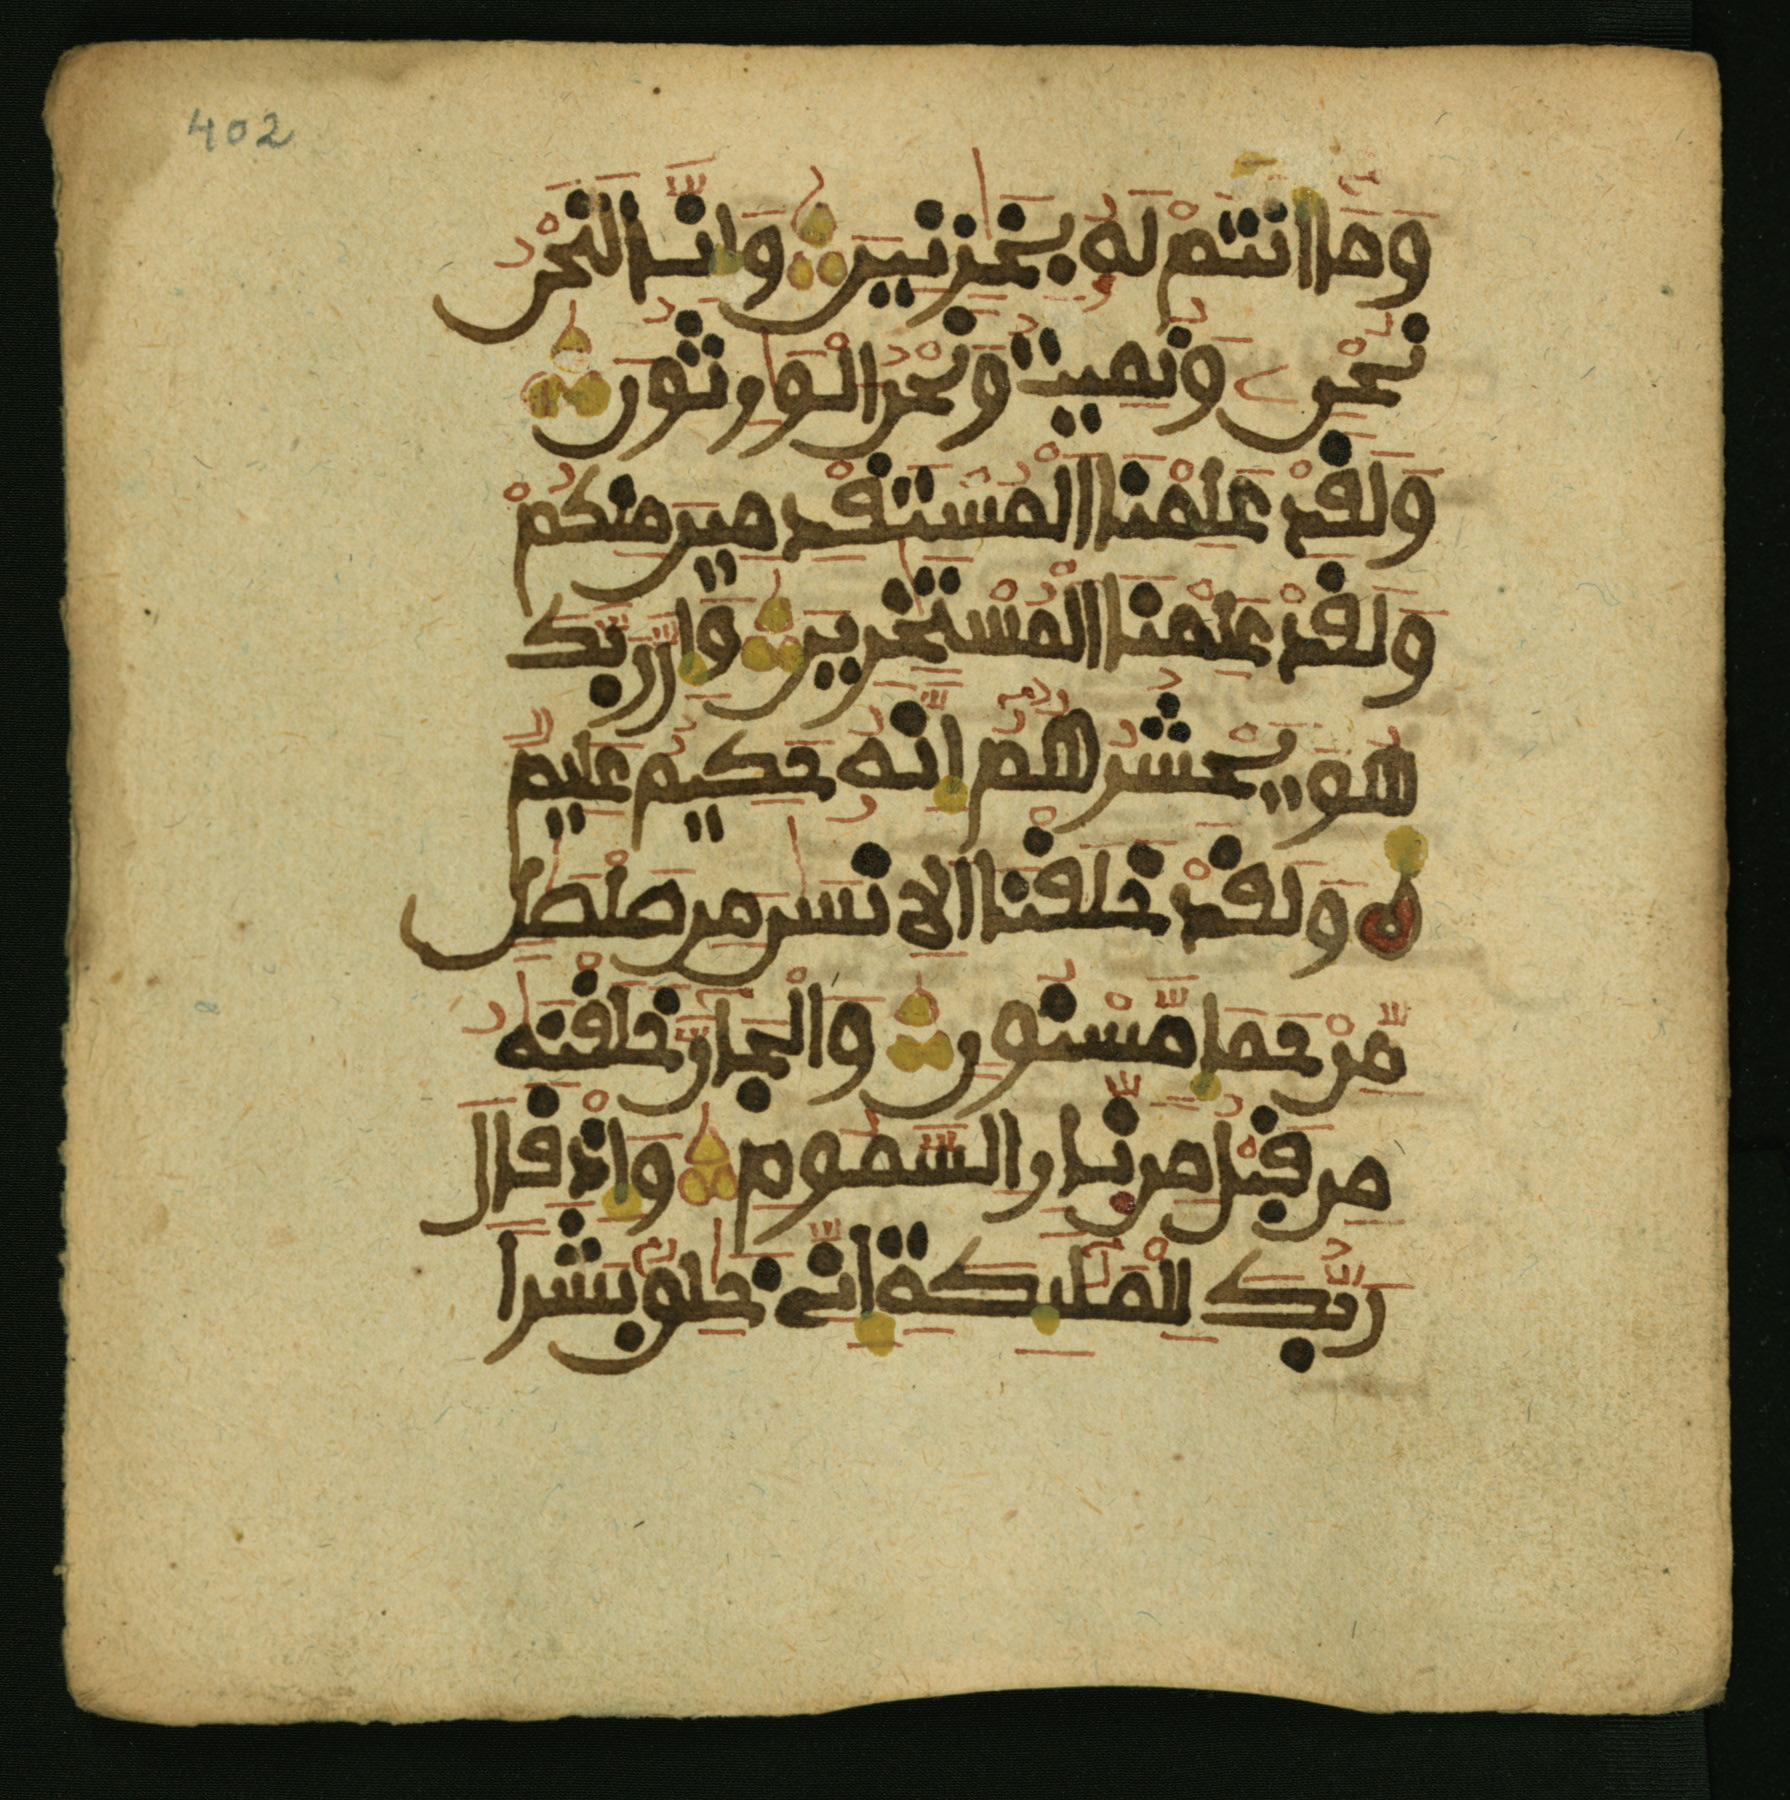 402
وَمَا أَنتُمْ لَهُ بِخَٰزِنِينَ وَإِنَّا لَنَحْنُ
نُحْيِ وَنُمِيتُ وَنَحْنُ الْوَٰرِثُونَ
وَلَقَدْ عَلِمْنَا الْمُسْتَقْدِمِينَ مِنكُمْ
وَلَقَدْ عَلِمْنَا الْمُسْتَـٔخِرِينَ وَإِنَّ رَبَّكَ
هُوَ يَحْشُرُهُمْ إِنَّهُ حَكِيمٌ عَلِيمٌ
وَلَقَدْ خَلَقْنَا الْإِنسَٰنَ مِن صَلْصَٰلٍ
مِّنْ حَمَإٍ مَّسْنُونٍ وَالْجَآنَّ خَلَقْنَٰهُ
مِن قَبْلُ مِن نَّارِ السَّمُومِ وَإِذْ قَالَ
رَبُّكَ لِلْمَلَٰٓئِكَةِ إِنِّي خَٰلِقٌ بَشَرًا